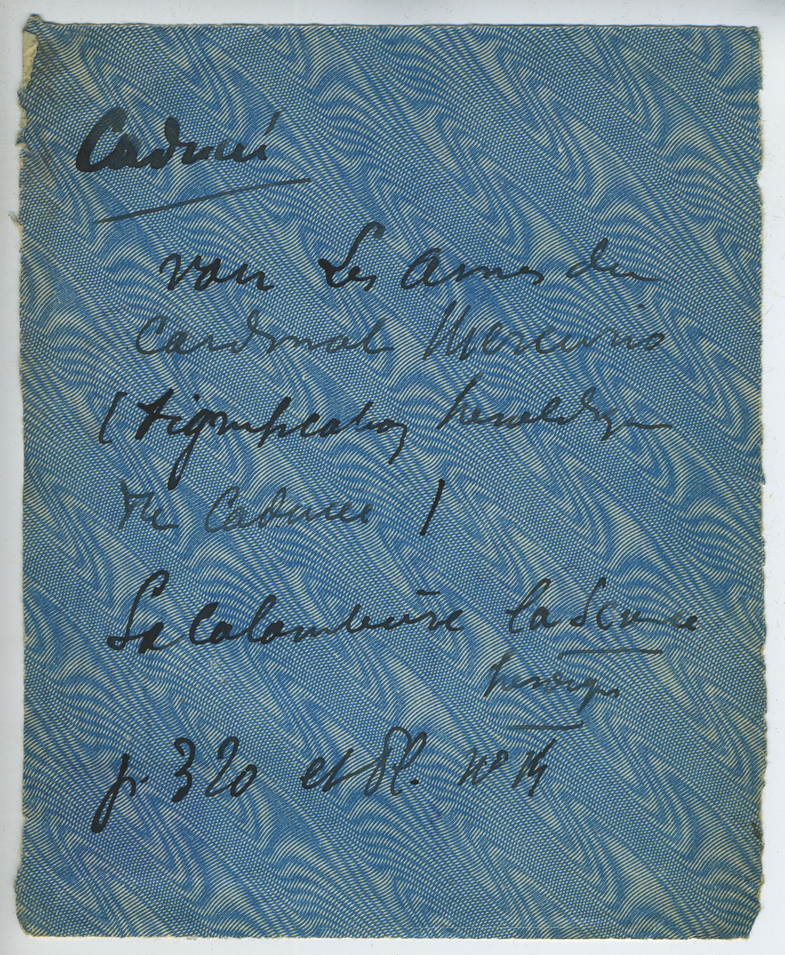 Caducée
voir les armes du
Cardinal Mercurio
(signification héraldique
du Caducée )
La Colombière la Science
héroïque
p. 320 et Pl. nº 14